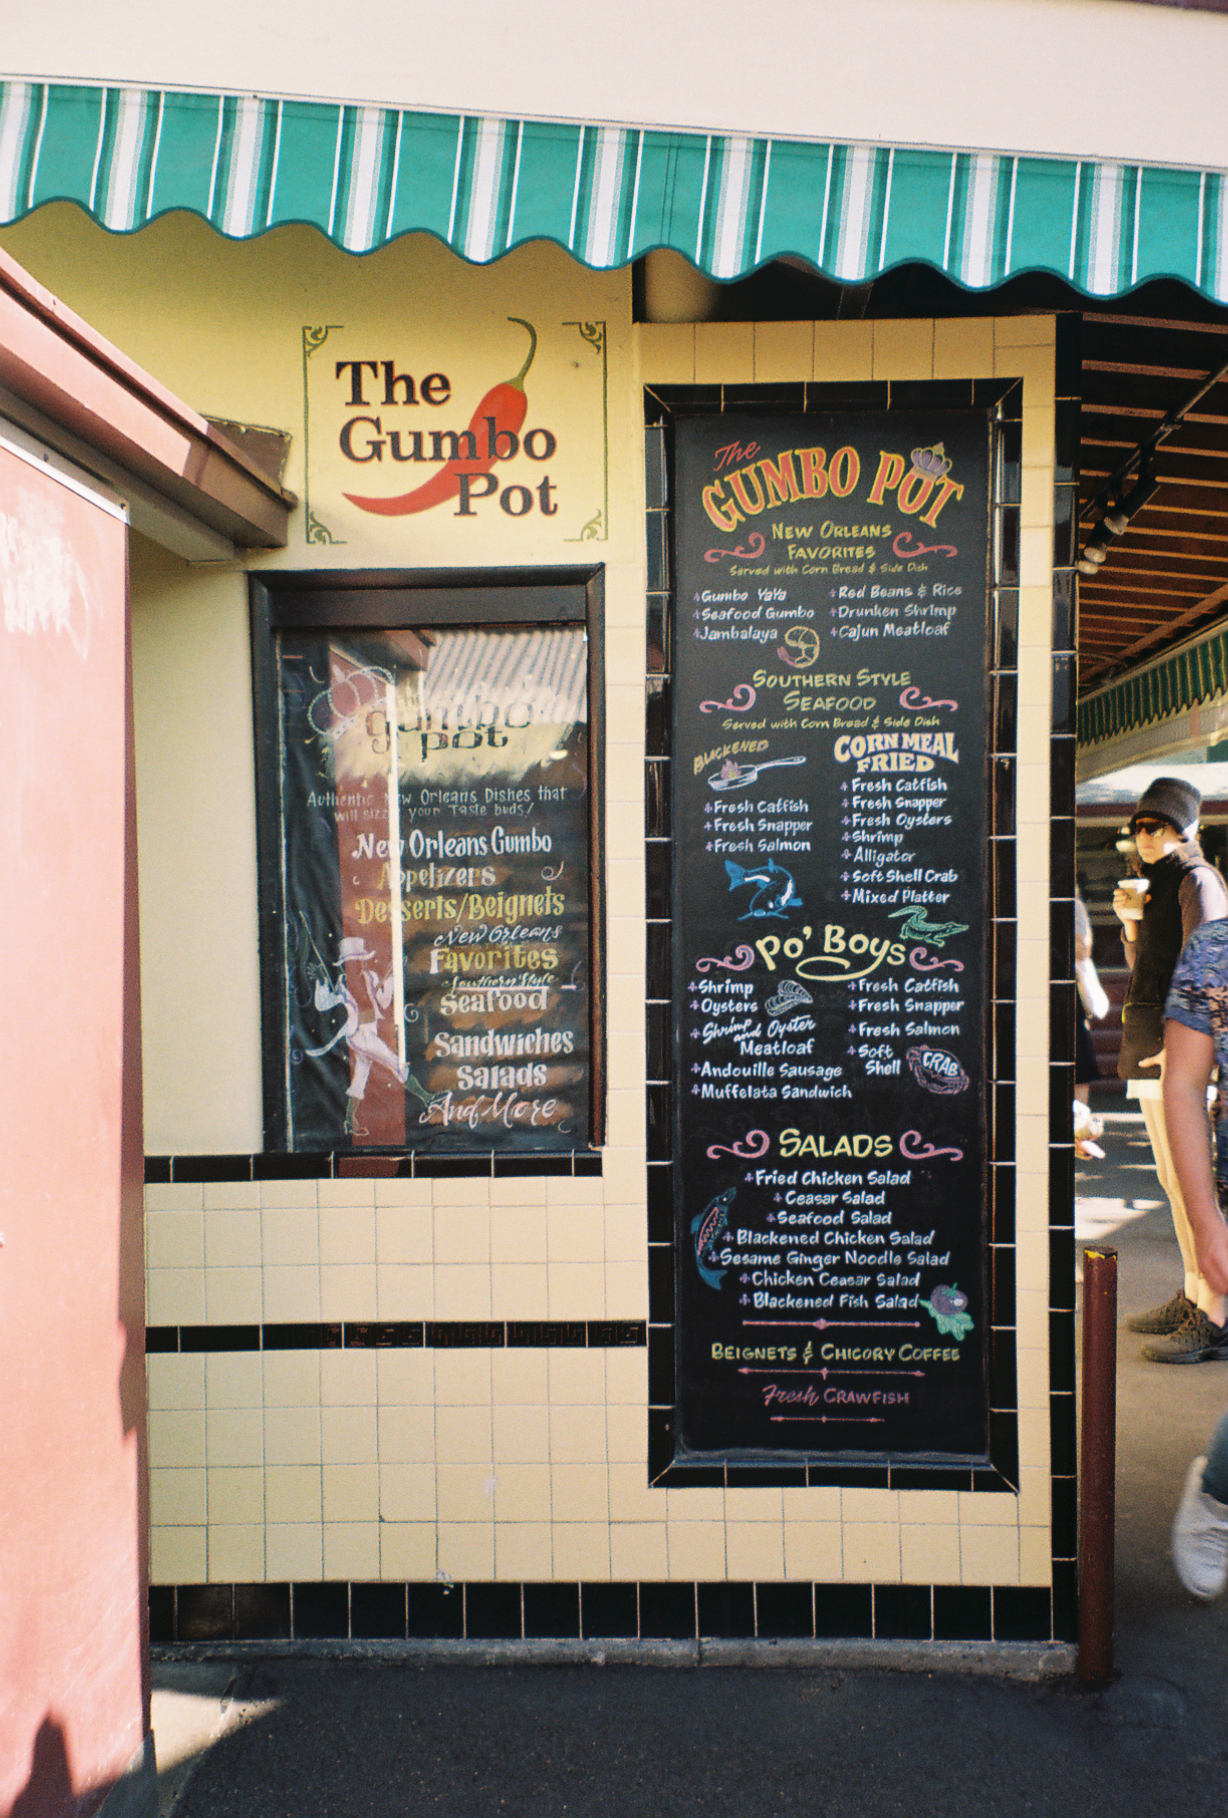 The
Gumbo
Pot
the
gumbo
pot
Authentic New Orleans Dishes that
will sizzle your Taste buds!
New Orleans Gumbo
Appetizers
Desserts/Beignets
New Orleans
Favorites
Southern Style
Seafood
Sandwiches
Salads
And More
The
GUMBO POT
NEW ORLEANS
FAVORITES
Served with Corn Bread & Side Dish
Gumbo YaYa
Seafood Gumbo
Jambalaya
Red Beans & Rice
Drunken Shrimp
Cajun Meatloaf
SOUTHERN STYLE
SEAFOOD
Served with Corn Bread & Side Dish
BLACKENED
Fresh Catfish
Fresh Snapper
Fresh Salmon
CORN MEAL
FRIED
Fresh Catfish
Fresh Snapper
Fresh Oysters
Shrimp
Alligator
Soft Shell Crab
Mixed Platter
Po' Boys
Shrimp
Oysters
Shrimp and Oyster
Meatloaf
Andouille Sausage
Muffelata Sandwich
Fresh Catfish
Fresh Snapper
Fresh Salmon
Soft
Shell
CRAB
SALADS
Fried Chicken Salad
Ceasar Salad
Seafood Salad
Blackened Chicken Salad
Sesame Ginger Noodle Salad
Chicken Ceasar Salad
Blackened Fish Salad
BEIGNETS & CHICORY COFFEE
Fresh CRAWFISH